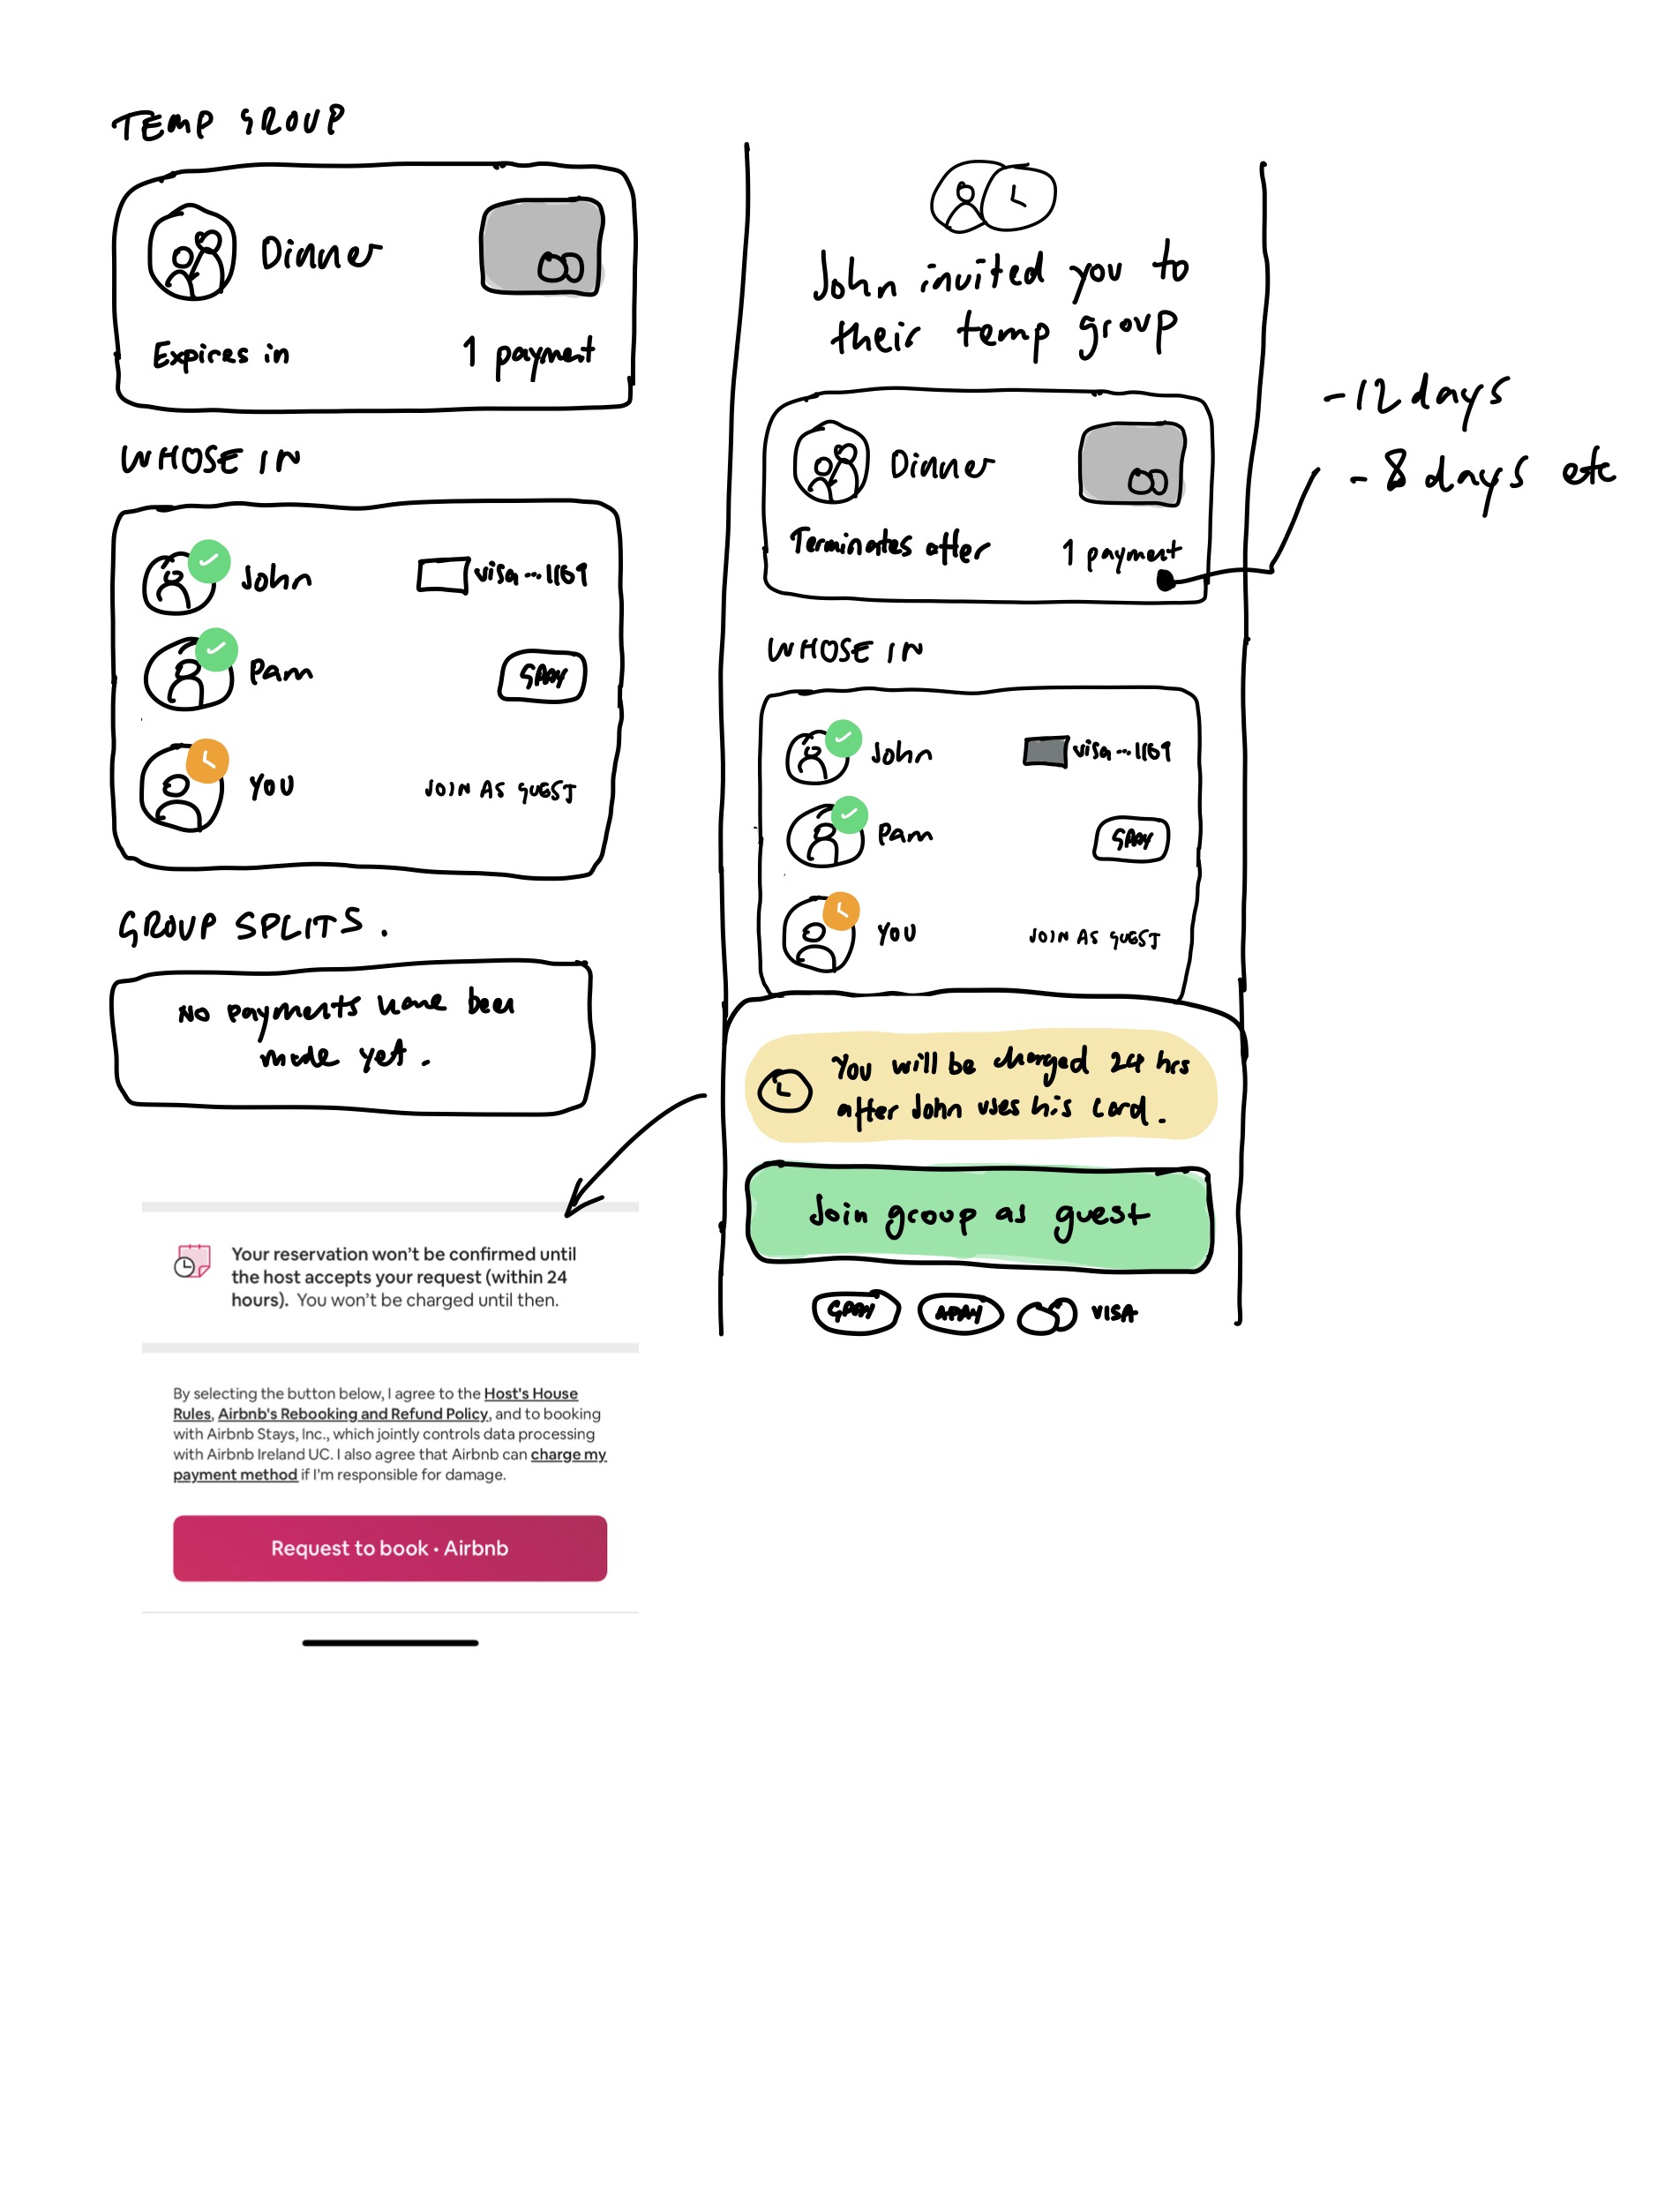 TEMP GROUP
Dinner
Expires in
1 payment
WHOSE IN
John
visa ... 1169
Pam
GPAY
YOU
JOIN AS GUEST
GROUP SPLITS.
No payments have been
made yet.
Your reservation won't be confirmed until
the host accepts your request (within 24
hours). You won't be charged until then.
By selecting the button below, I agree to the Host's House
Rules, Airbnb's Rebooking and Refund Policy, and to booking
with Airbnb Stays, Inc., which jointly controls data processing
with Airbnb Ireland UC. I also agree that Airbnb can charge my
payment method if I'm responsible for damage.
Request to book • Airbnb
John invited you to
their temp group
Dinner
Terminates after
1 payment
WHOSE IN
John
visa ... 1169
Pam
GPAY
YOU
JOIN AS GUEST
You will be charged 24 hrs
after John uses his card.
Join group as guest
GPAY
APAY
VISA
-12 days
- 8 days etc